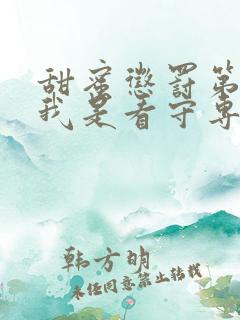 甜蜜懲罰第
我是看守專
韩方明
未经同意禁止转载